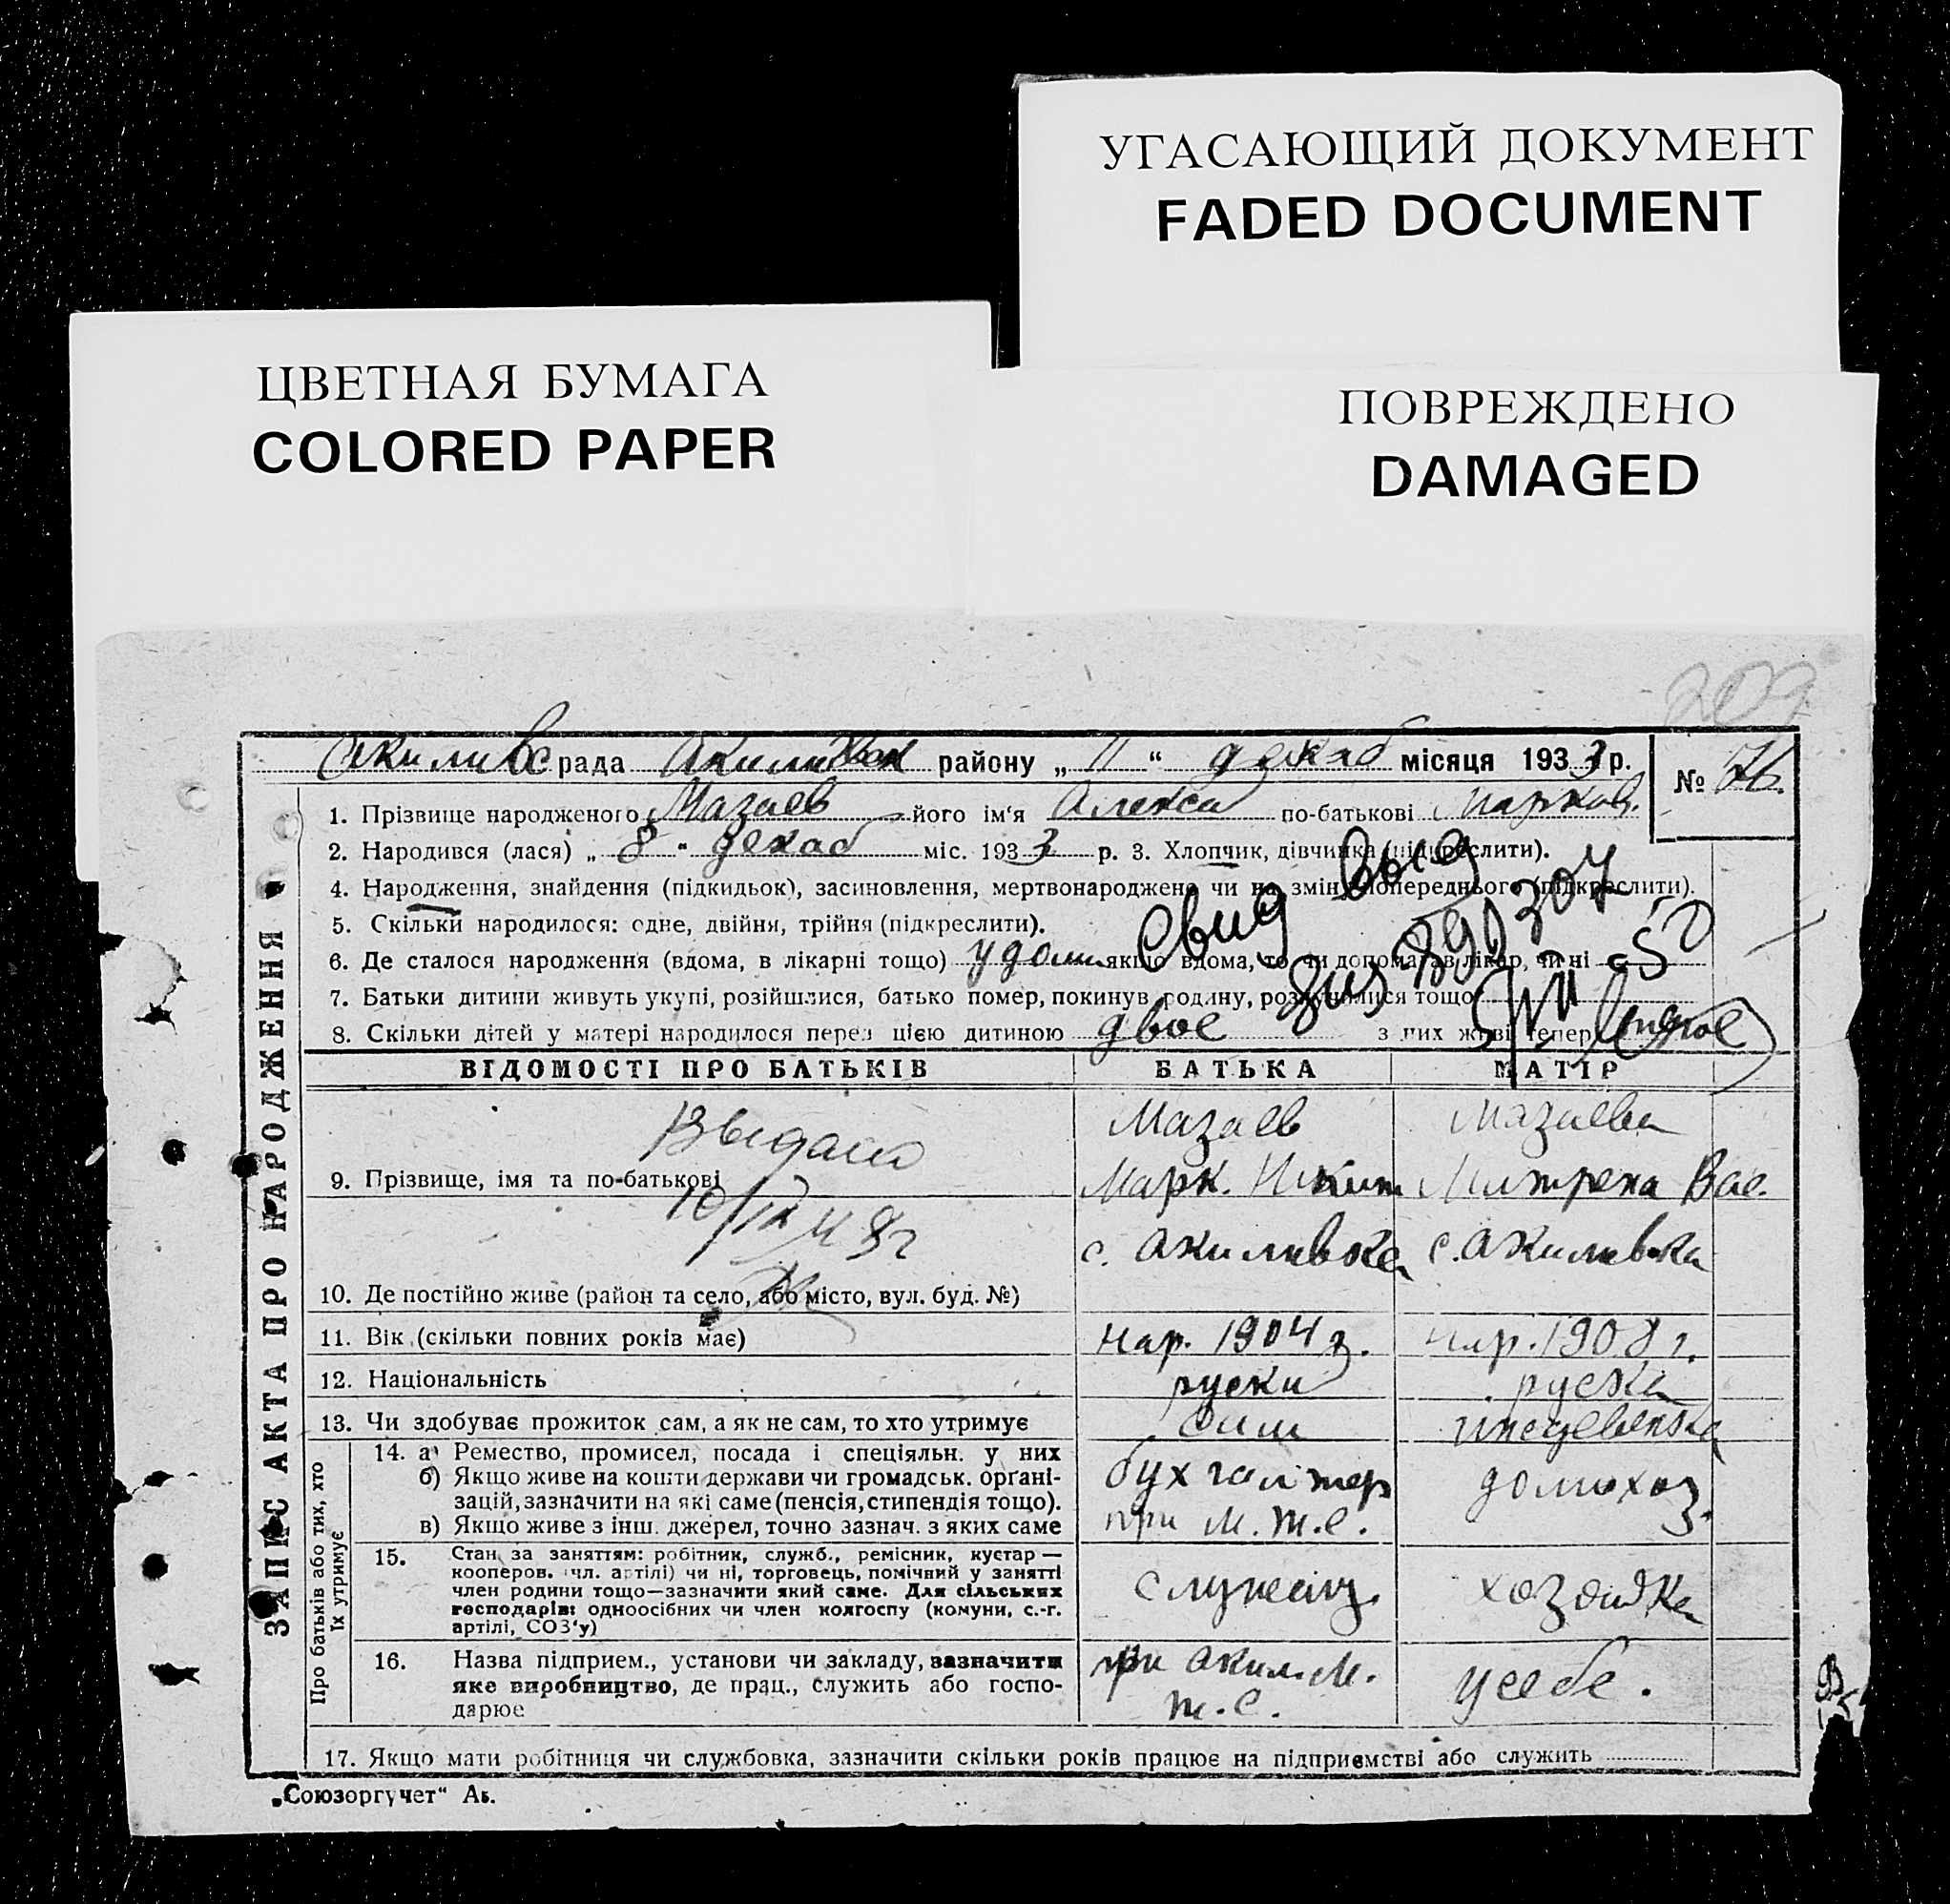 УГАСАЮЩИЙ ДОКУМЕНТ
FADED DOCUMENT
ЦВЕТНАЯ БУМАГА
COLORED PAPER
ПОВРЕЖДЕНО
DAMAGED
209
рада района „ 11 “ декаб місяця 1933 р.
№ 76.
ЗАПИС АКТА ПРО НАРОДЖЕННЯ
1. Прізвище народженого Мазаев його ім'я Алекса по-батькові Марков.
2. Народився (лася) „ 8 “ декаб міс. 1933 р. 3. Хлопчик, дівчинка (підкреслити).
4. Народження, знайдення (підкидьок), засиновлення, мертвонароджене чи на зміну попереднього (підкреслити).
5. Скільки народилося: одне, двійни, трійня (підкреслити).
6. Де сталося народження (вдома, в лікарні тощо) удома якщо вдома, то чи допомагав лікар, чи ні
7. Батьки дитини живуть укупі, розійшлися, батько помер, покинув родину, розлучилися тощо
8. Скільки дітей у матері народилося перед цією дитиною двое з них живі тепер
Свид выд
ВІДОМОСТІ ПРО БАТЬКІВ БАТЬКА МАТІР
Выдано
Мазаев Мазаева
9. Прізвище, імя та по-батькові Марк. Никит Митрена Вас.
с. Акимивка с. Акимивка
10. Де постійно живе (район та село, або місто, вул. буд. №)
11. Вік (скільки повних років має) нар. 1904 г. нар. 1908 г.
12. Національність руски руска
13. Чи здобуває прожиток сам, а як не сам, то хто утримує сам
Про батьків або тих, хто їх утримує
14. а) Ремество, промисел, посада і спеціяльн. у них
б) Якщо живе на кошти держави чи громадськ. орґані-
зацій, зазначити на які саме (пенсія, стипендія тощо).
в) Якщо живе з інш. джерел, точно зазнач. з яких саме
бухгалтер
при М.Т.С.
домохоз.
15. Стан за заняттям: робітник, служб., ремісник, кустар —
кооперов. чл. артілі) чи ні, торговець, помічний у занятті
член родини тощо—зазначити який саме. Для сільських
господарів: одноосібних чи член колгоспу (комуни, с.-г.
артілі, СОЗ'у)
служащ.
хозяйка
16. Назва підприєм., установи чи закладу, зазначити
яке виробництво, де прац., служить або госпо-
дарює
при Аким. М.
Т.С.
у себе.
17. Якщо мати робітниця чи службовка, зазначити скільки років працює на підприємстві або служить
„Союзоргучет“